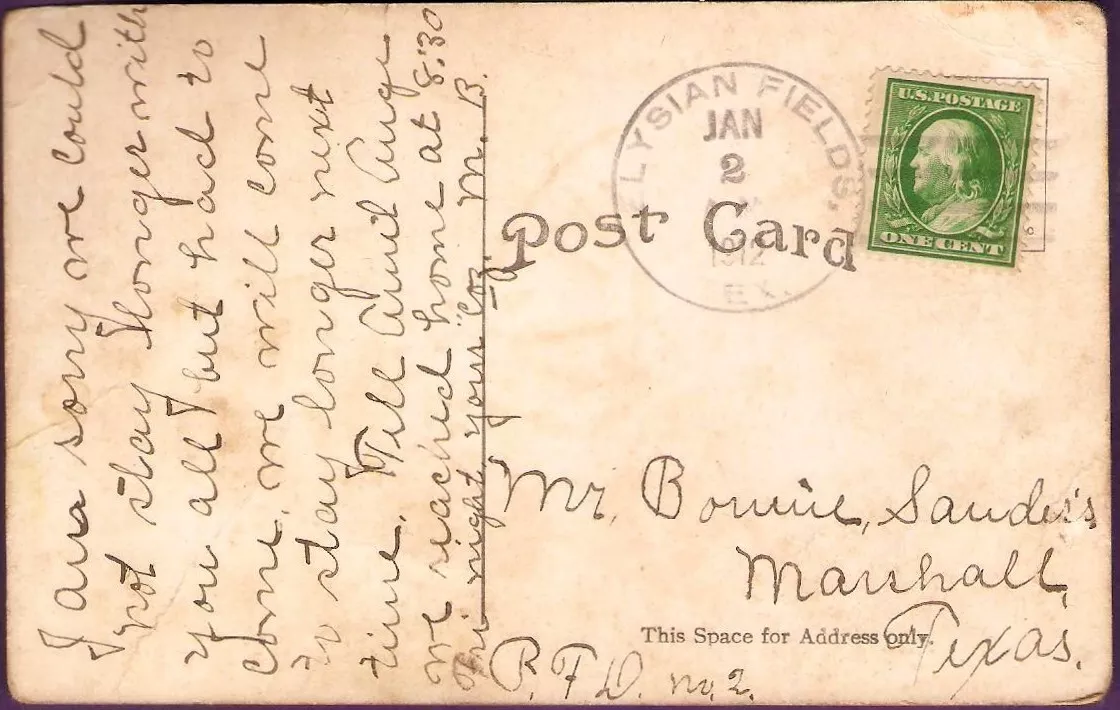 I am sorry we could
not stay longer with
you all but had to
come, we will come
to stay longer next
time. Tell Aunt Ange
we reached home at 8:30
Fri night, your "Coz." M. B.
ELYSIAN FIELDS,
JAN
2
1912
TEX.
U.S. POSTAGE
ONE CENT
Post Card
Mr. Bonnie, Sanders
Marshall,
This Space for Address only.
Texas.
R. F. D. no. 2.